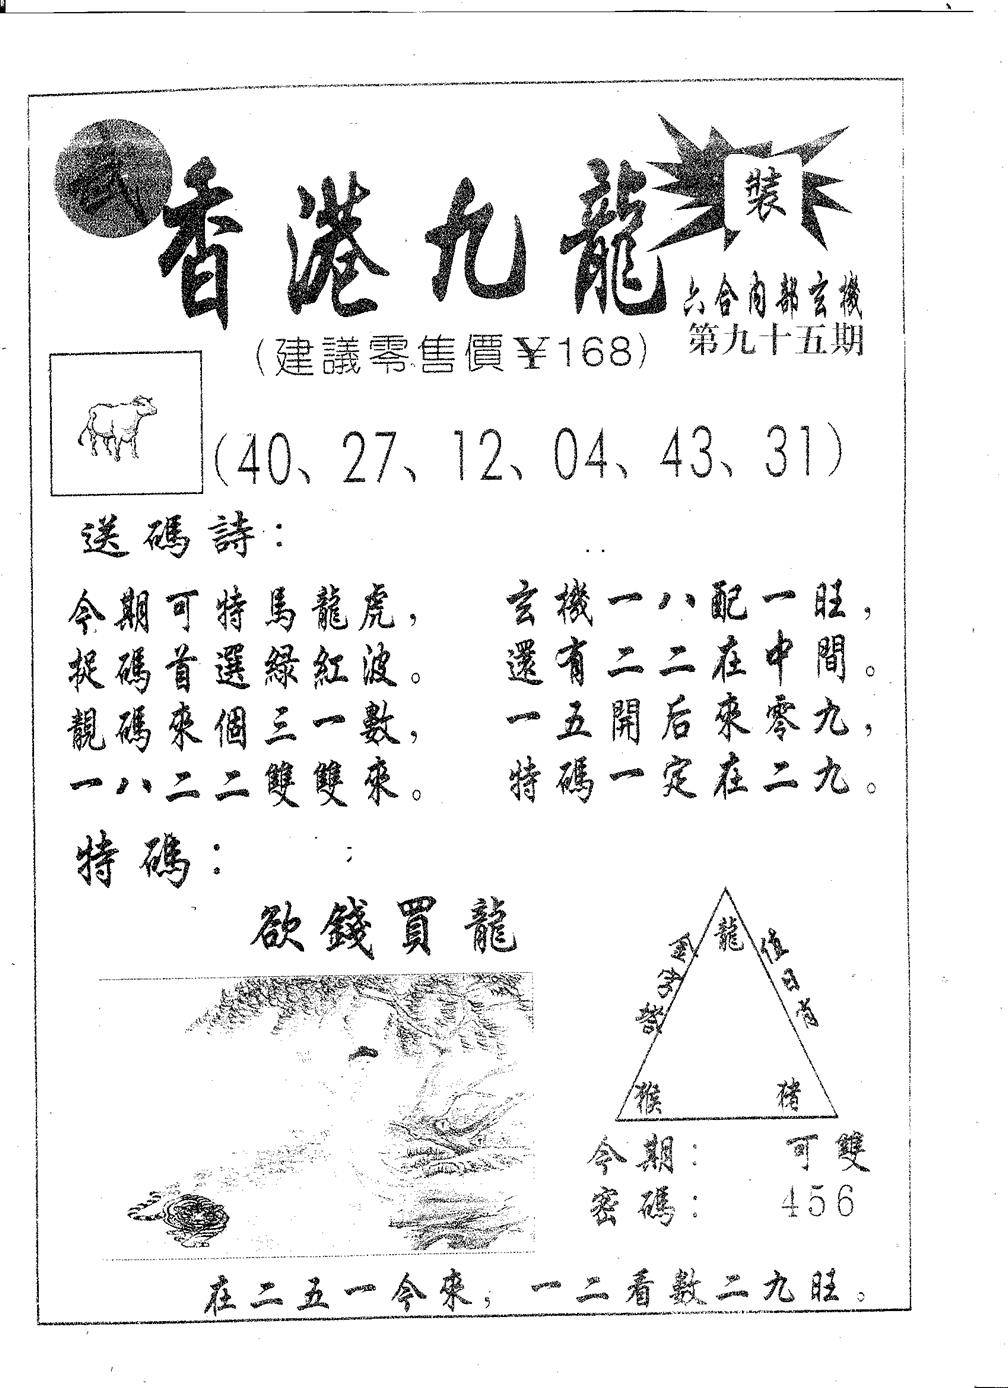 武
香港九龍
裝
六合内部玄機
第九十五期
(建議零售價¥168)
(40、27、12、04、43、31)
送碼詩：
今期可特馬龍虎，
捉碼首選綠紅波。
靚碼來個三一數，
一八二二雙雙來。
玄機一八配一旺，
還有二二在中間。
一五開后來零九，
特碼一定在二九。
特碼：
欲錢買龍
龍
值日肖
猴
猪
今期： 可雙
密碼： 456
在二五一今來，一二看數二九旺。